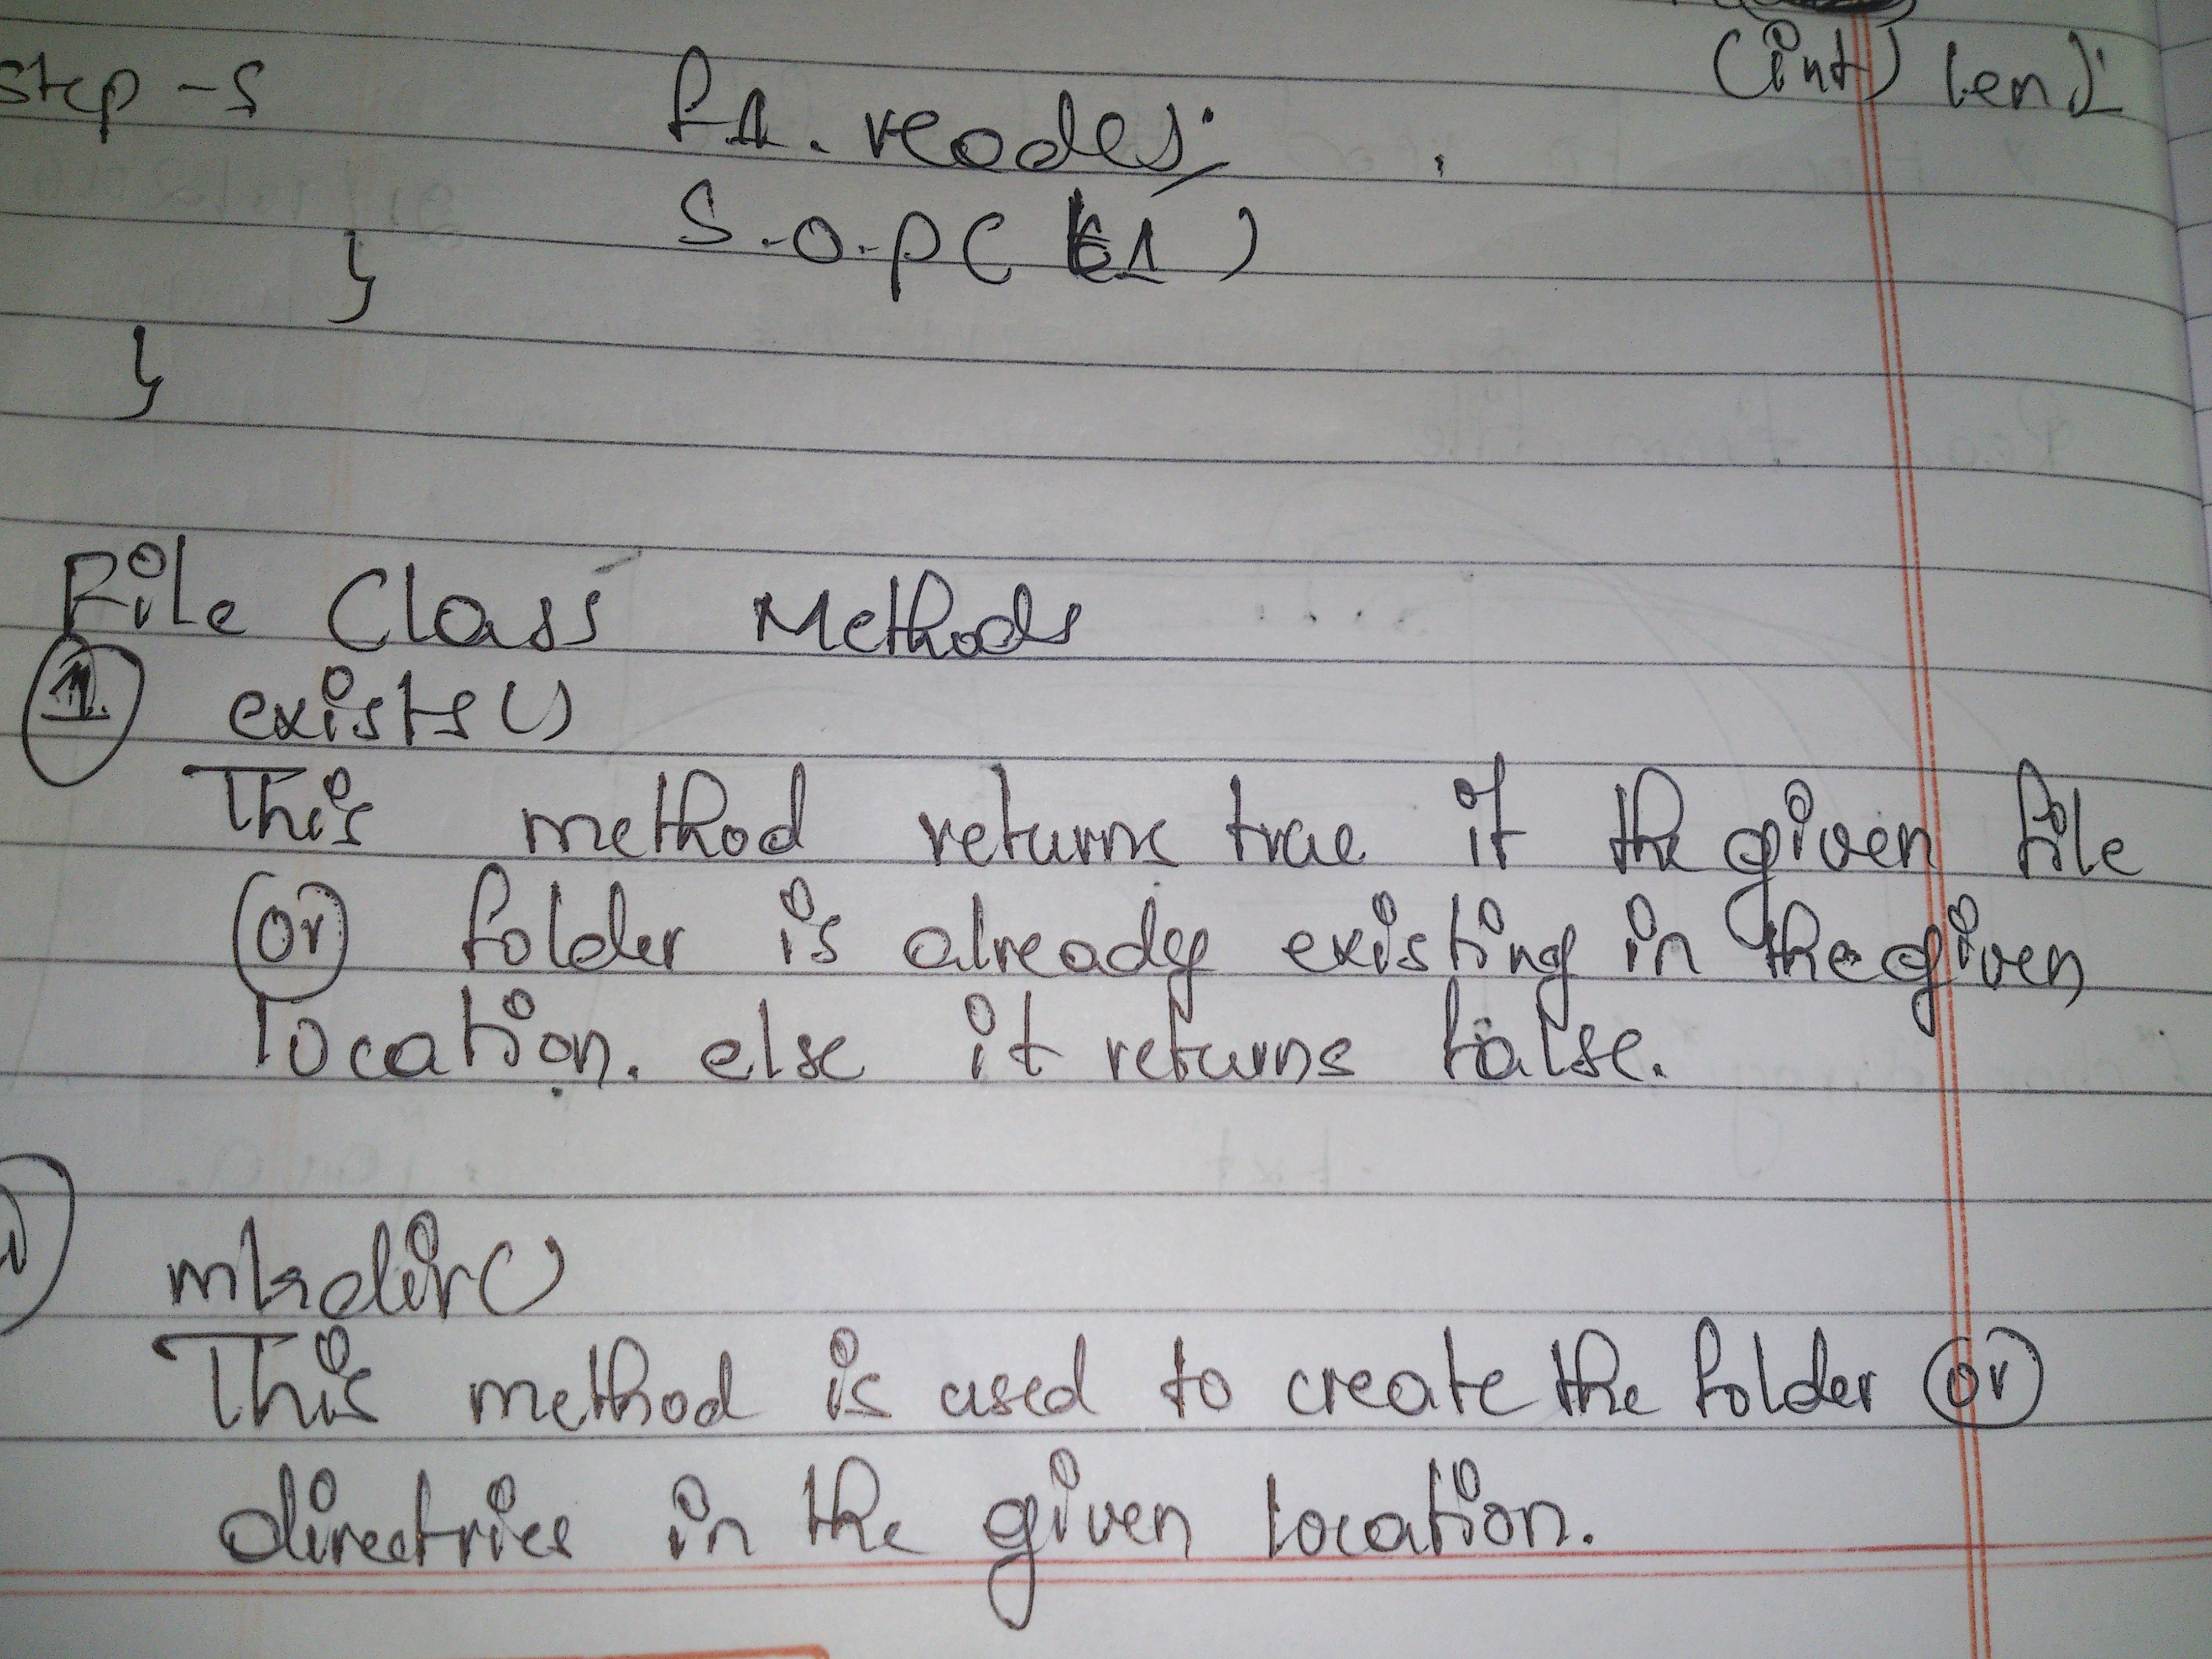 (int) len];
step-5 f1.reades;
S.O.P( 1 )
}
}
File Class Methods
1. exists()
This method returns true if the given file
(or) folder is already existing in the given
location. else it returns false.
mkdir()
This method is used to create the folder (or)
directries in the given location.